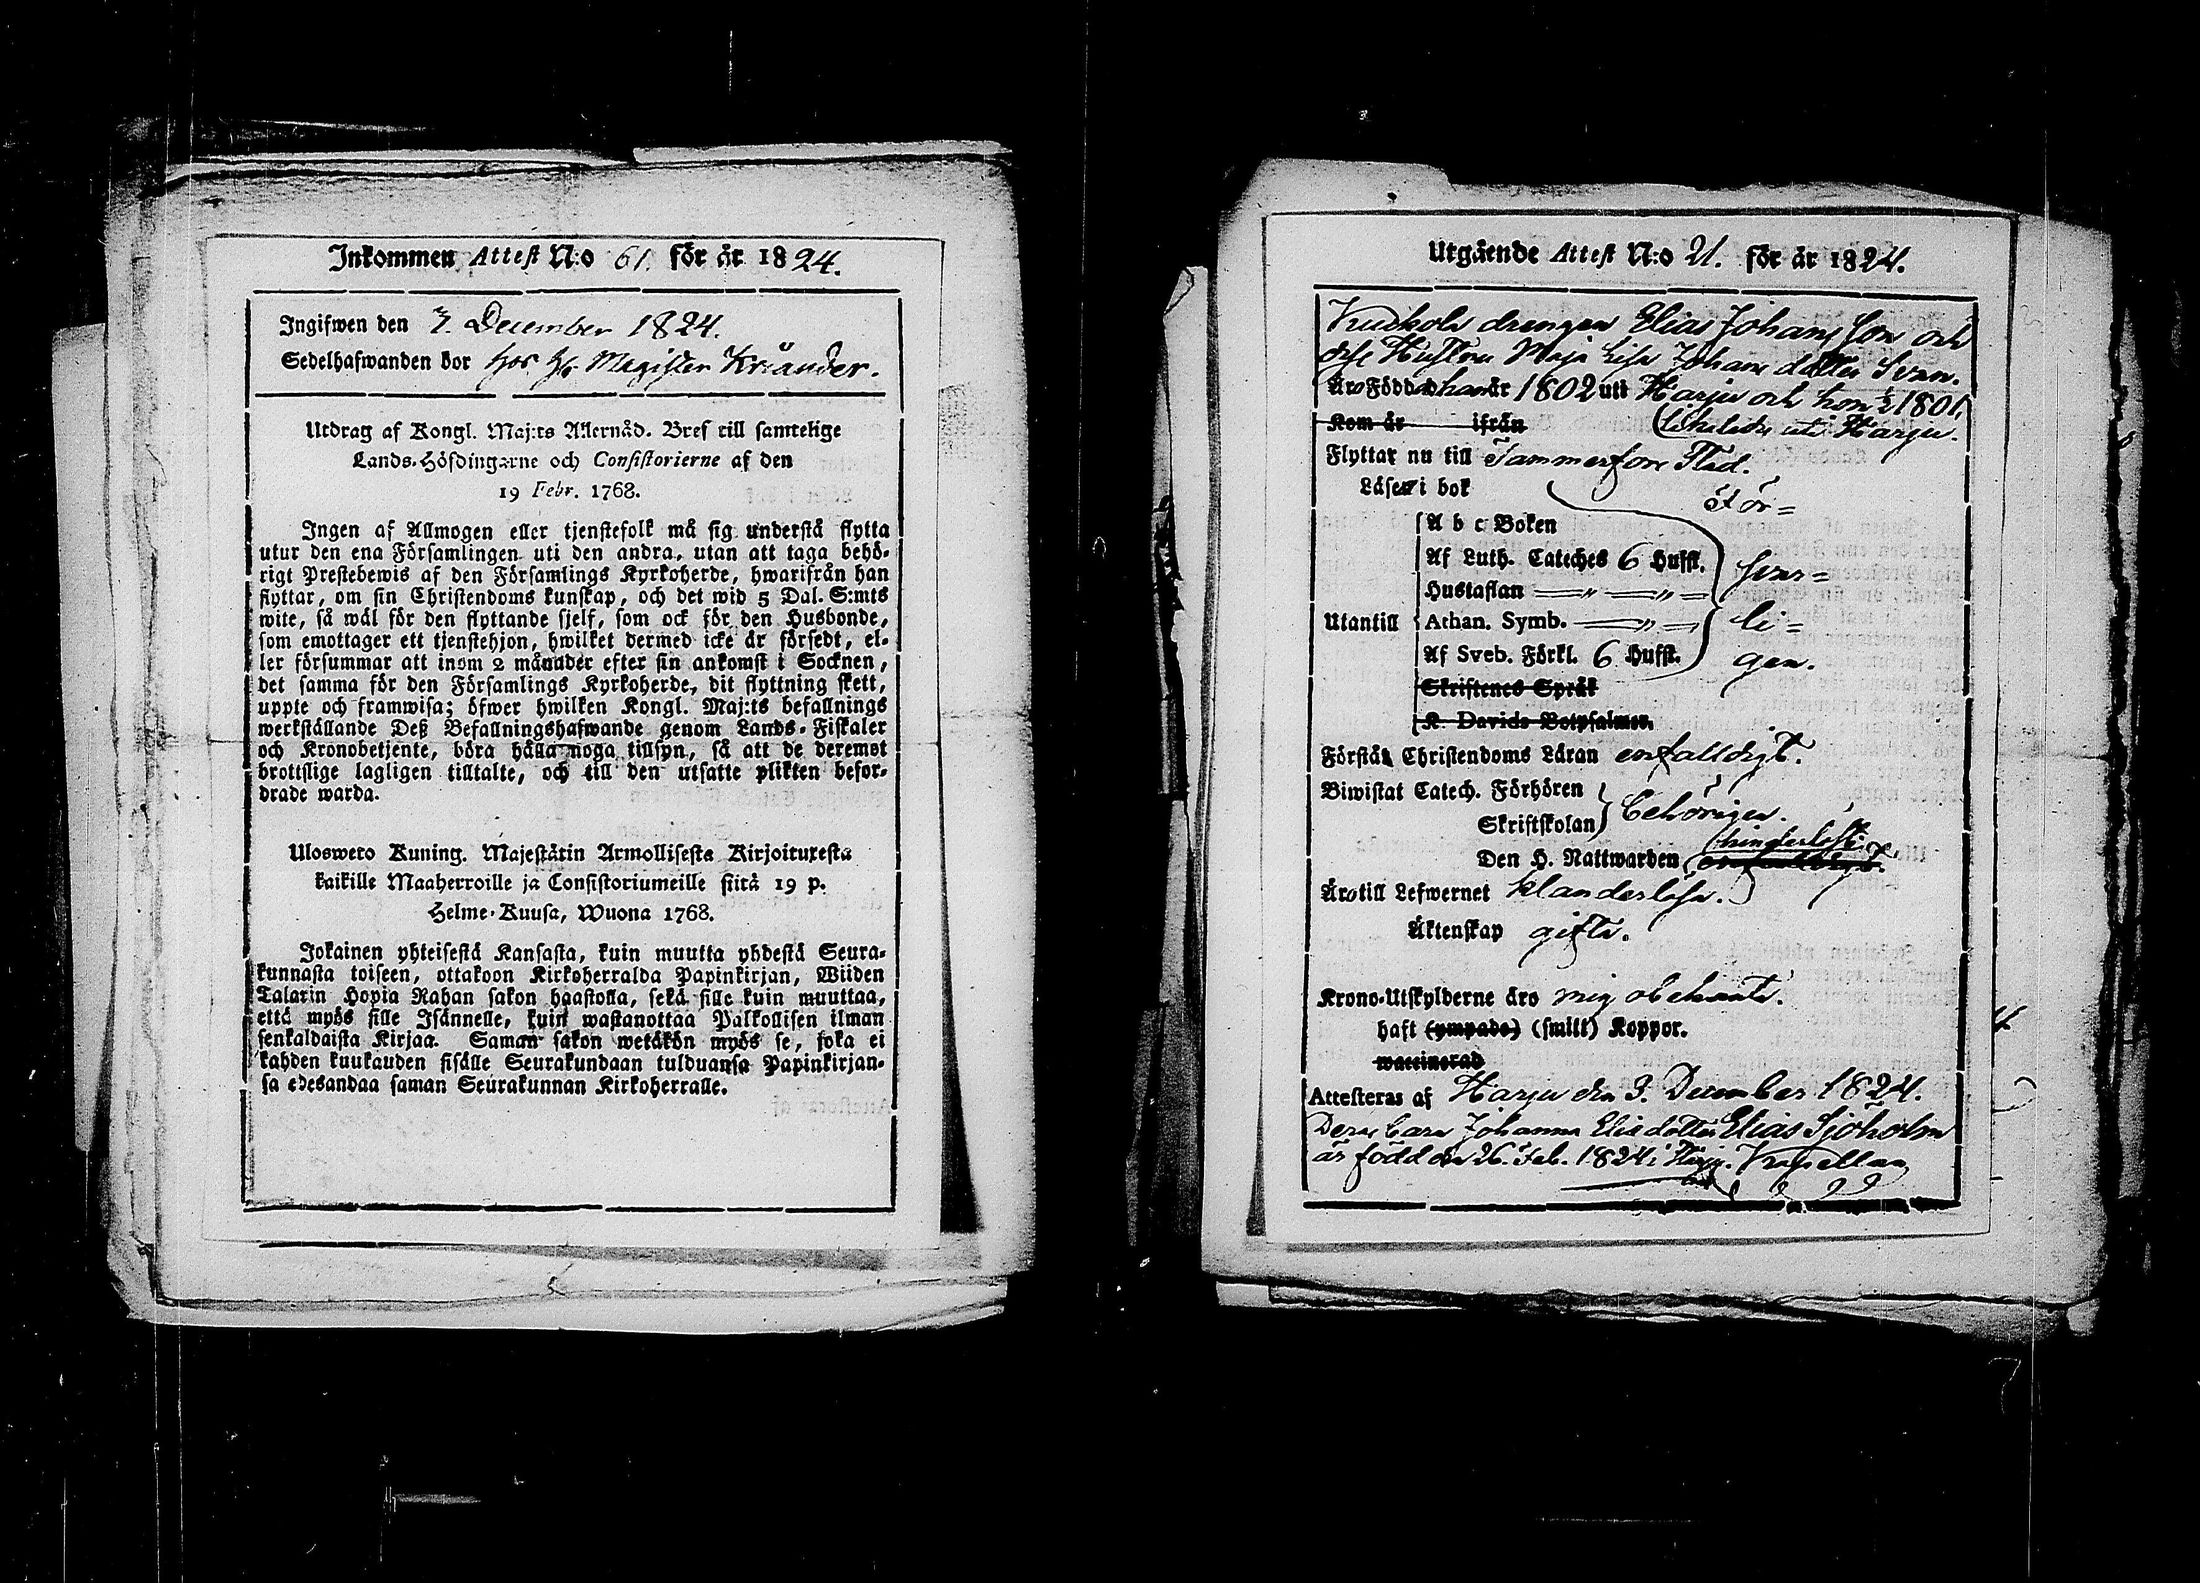 Inkommen Attest N:o 61. för år 1824.
Ingifwen den 7. December 1824.
Sedelhafwanden bor hos Hr Magister Kriander.
Utdrag af Kongl. Maj:ts Allernåd. Bref till samtelige
Lands-Höfdingarne och Consistorierne af den
19 Febr. 1768.
Ingen af Allmogen eller tjenstefolk må sig understå flytta
utur den ena Församlingen uti den andra, utan att taga behö-
rigt Prestebewis af den Församlings Kyrkoherde, hwarifrån han
flyttar, om sin Christendoms kunskap, och det wid 5 Dal. S:mts
wite, så wäl för den flyttande sjelf, som ock för den Husbonde,
som emottager ett tjenstehjon, hwilket dermed icke är försedt, el-
ler försummar att inom 2 månader efter sin ankomst i Socknen,
det samma för den Församlings Kyrkoherde, dit flyttning skett,
uppte och framwisa; öfwer hwilken Kongl. Maj:ts befallnings
werkställande Deß Befallningshafwande genom Lands-Fiskaler
och Kronobetjente, böra hålla noga tillsyn, så att de deremot
brottslige lagligen tilltalte, och till den utsatte plikten befor-
drade warda.
Ulosweto Kuning. Majestätin Armollisesta Kirjoituxesta
kaikille Maaherroille ja Consistoriumeille siitä 19 p.
Helme-Kuusa, Wuona 1768.
Jokainen yhteisestä Kansasta, kuin muutta yhdestä Seura-
kunnasta toiseen, ottakoon Kirkoherralda Papinkirjan, Wiiden
Talarin Hopia Rahan sakon haastolla, sekä sille kuin muuttaa,
että myös sille Isännelle, kuin wastanottaa Palkollisen ilman
senkaldaista Kirjaa. Saman sakon wetäkön myös se, joka ei
kahden kuukauden sisälle Seurakundaan tulduansa Papinkirjan-
sa edesandaa saman Seurakunnan Kirkoherralle.
Utgående Attest N:o 21. för år 1824.
drengen Elias Johans Son och
dess Hustru Maja Lisa Johans dotter Svan.
Äro Födda han år 1802 uti Harju och hon 1801
likaledes uti Harju.
Kom år ifrån
Flyttar nu till Tammerfors Stad.
Läser i bok För=
A b c Boken
Af Luth. Cateches 6 Hufst. svar=
Hustaflan
Utantill Athan. Symb. li=
Af Sveb. Förkl. 6 Hufst. gen.
Skriftenes Språk
K. Davids Botpsalmer.
Förstår Christendoms Läran enfalldigt.
Biwistat Catech. Förhören
Skriftskolan behörigen.
Den H. Nattwarden
Äro till Lefwernet klanderlösa.
Äktenskap gifta.
Krono-Utskylderne äro mig obekanta.
haft (ympade) (smitt) Koppor.
waccinerad
Attesteras af Harju den 3. December 1824.
Deras barn Johanna Elias dotter Elias Sjöholm
är född den 26. Feb. 1824 i Harju. Kapellan